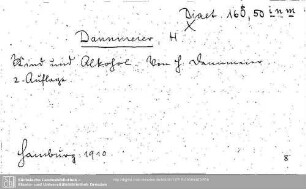 Diaet. 168, 50 inm
Dannmeier, H
Kind und Alkohol. Von H. Dannmeier
2. Auflage
Hamburg 1910
8
Sächsische Landesbibliothek -
Staats- und Universitätsbibliothek Dresden